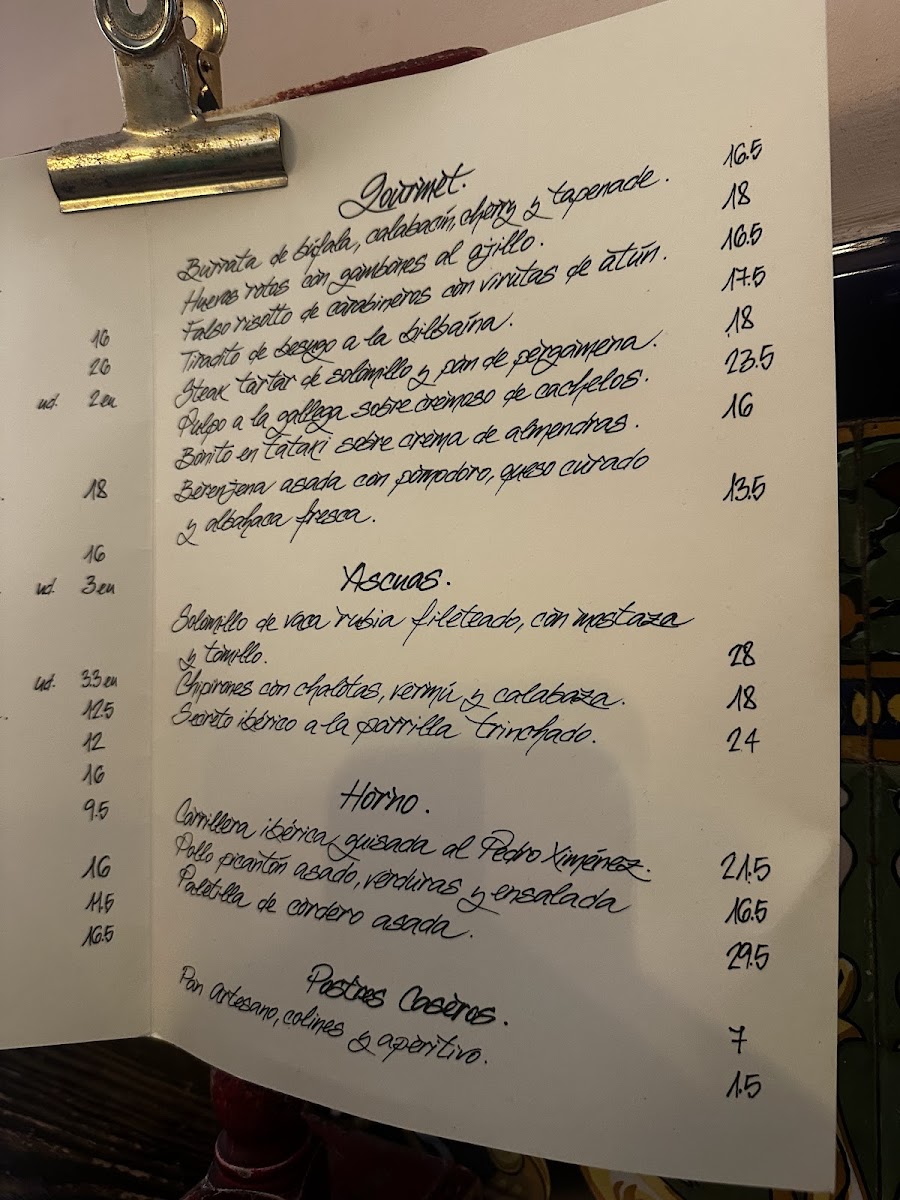 16
26
ud. 2 eu
18
16
ud. 3 eu
ud. 3.3 eu
12.5
12
16
9.5
16
11.5
16.5
Gourmet.
Burrata de búfala, calabacín, cherry y tapenade. 16.5
Huevos rotos con gambones al ajillo. 18
Falso risotto de carabineros con virutas de atún. 16.5
Tiradito de besugo a la bilbaína. 17.5
Steak tartar de solomillo y pan de pergamena. 18
Pulpo a la gallega sobre cremoso de cachelos. 23.5
Bonito en tataki sobre crema de almendras. 16
Berenjena asada con pomodoro, queso curado
y albahaca fresca. 13.5
Ascuas.
Solomillo de vaca rubia fileteado, con mostaza
y tomillo. 28
Chipirones con chalotas, vermú y calabaza. 18
Secreto ibérico a la parrilla trinchado. 24
Horno.
Carrillera ibérica guisada al Pedro Ximénez. 21.5
Pollo picantón asado, verduras y ensalada 16.5
Paletilla de cordero asada. 29.5
Postres Caseros. 7
Pan artesano, colines y aperitivo. 1.5